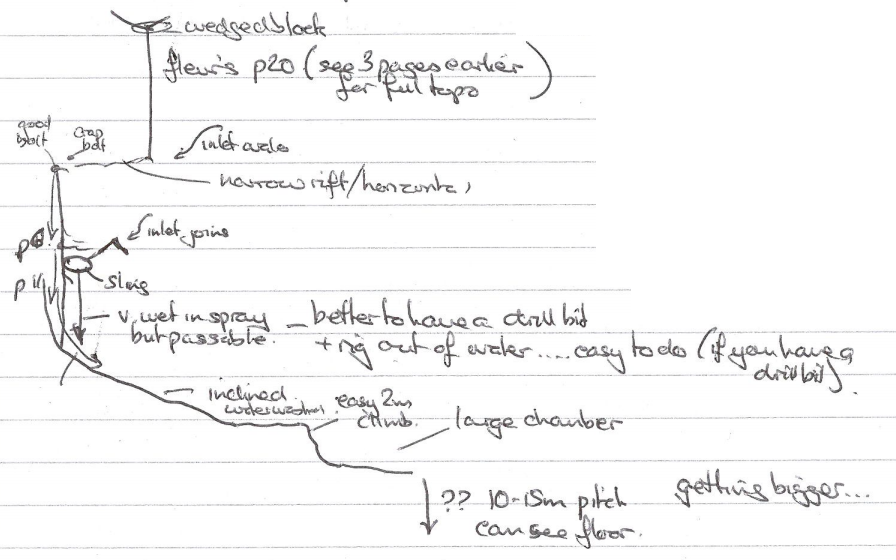 wedged block
fleur's p20 (see 3 pages earlier
for full topo)
good
bolt
crap
bolt
inlet
narrow rift/horizontal
inlet joins
p
p
sling
v. wet in spray
but passable.
better to have a drill bit
+ rig out of water.... easy to do (if you have a
drill bit).
inclined
easy 2m
climb.
large chamber
?? 10-15m pitch
can see floor.
getting bigger...